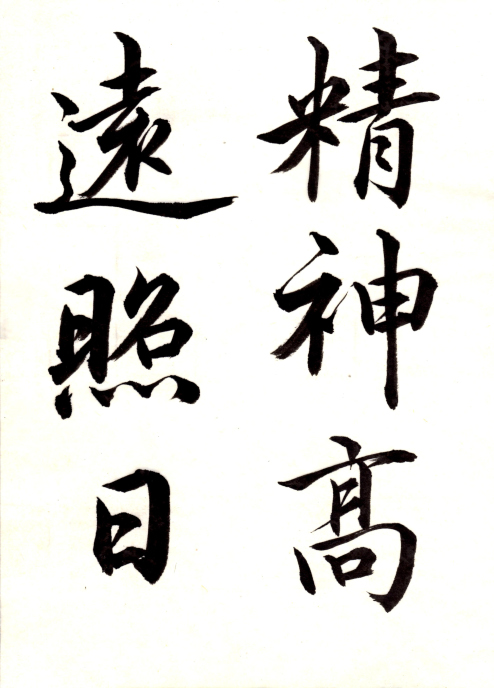 精神髙
遠照日